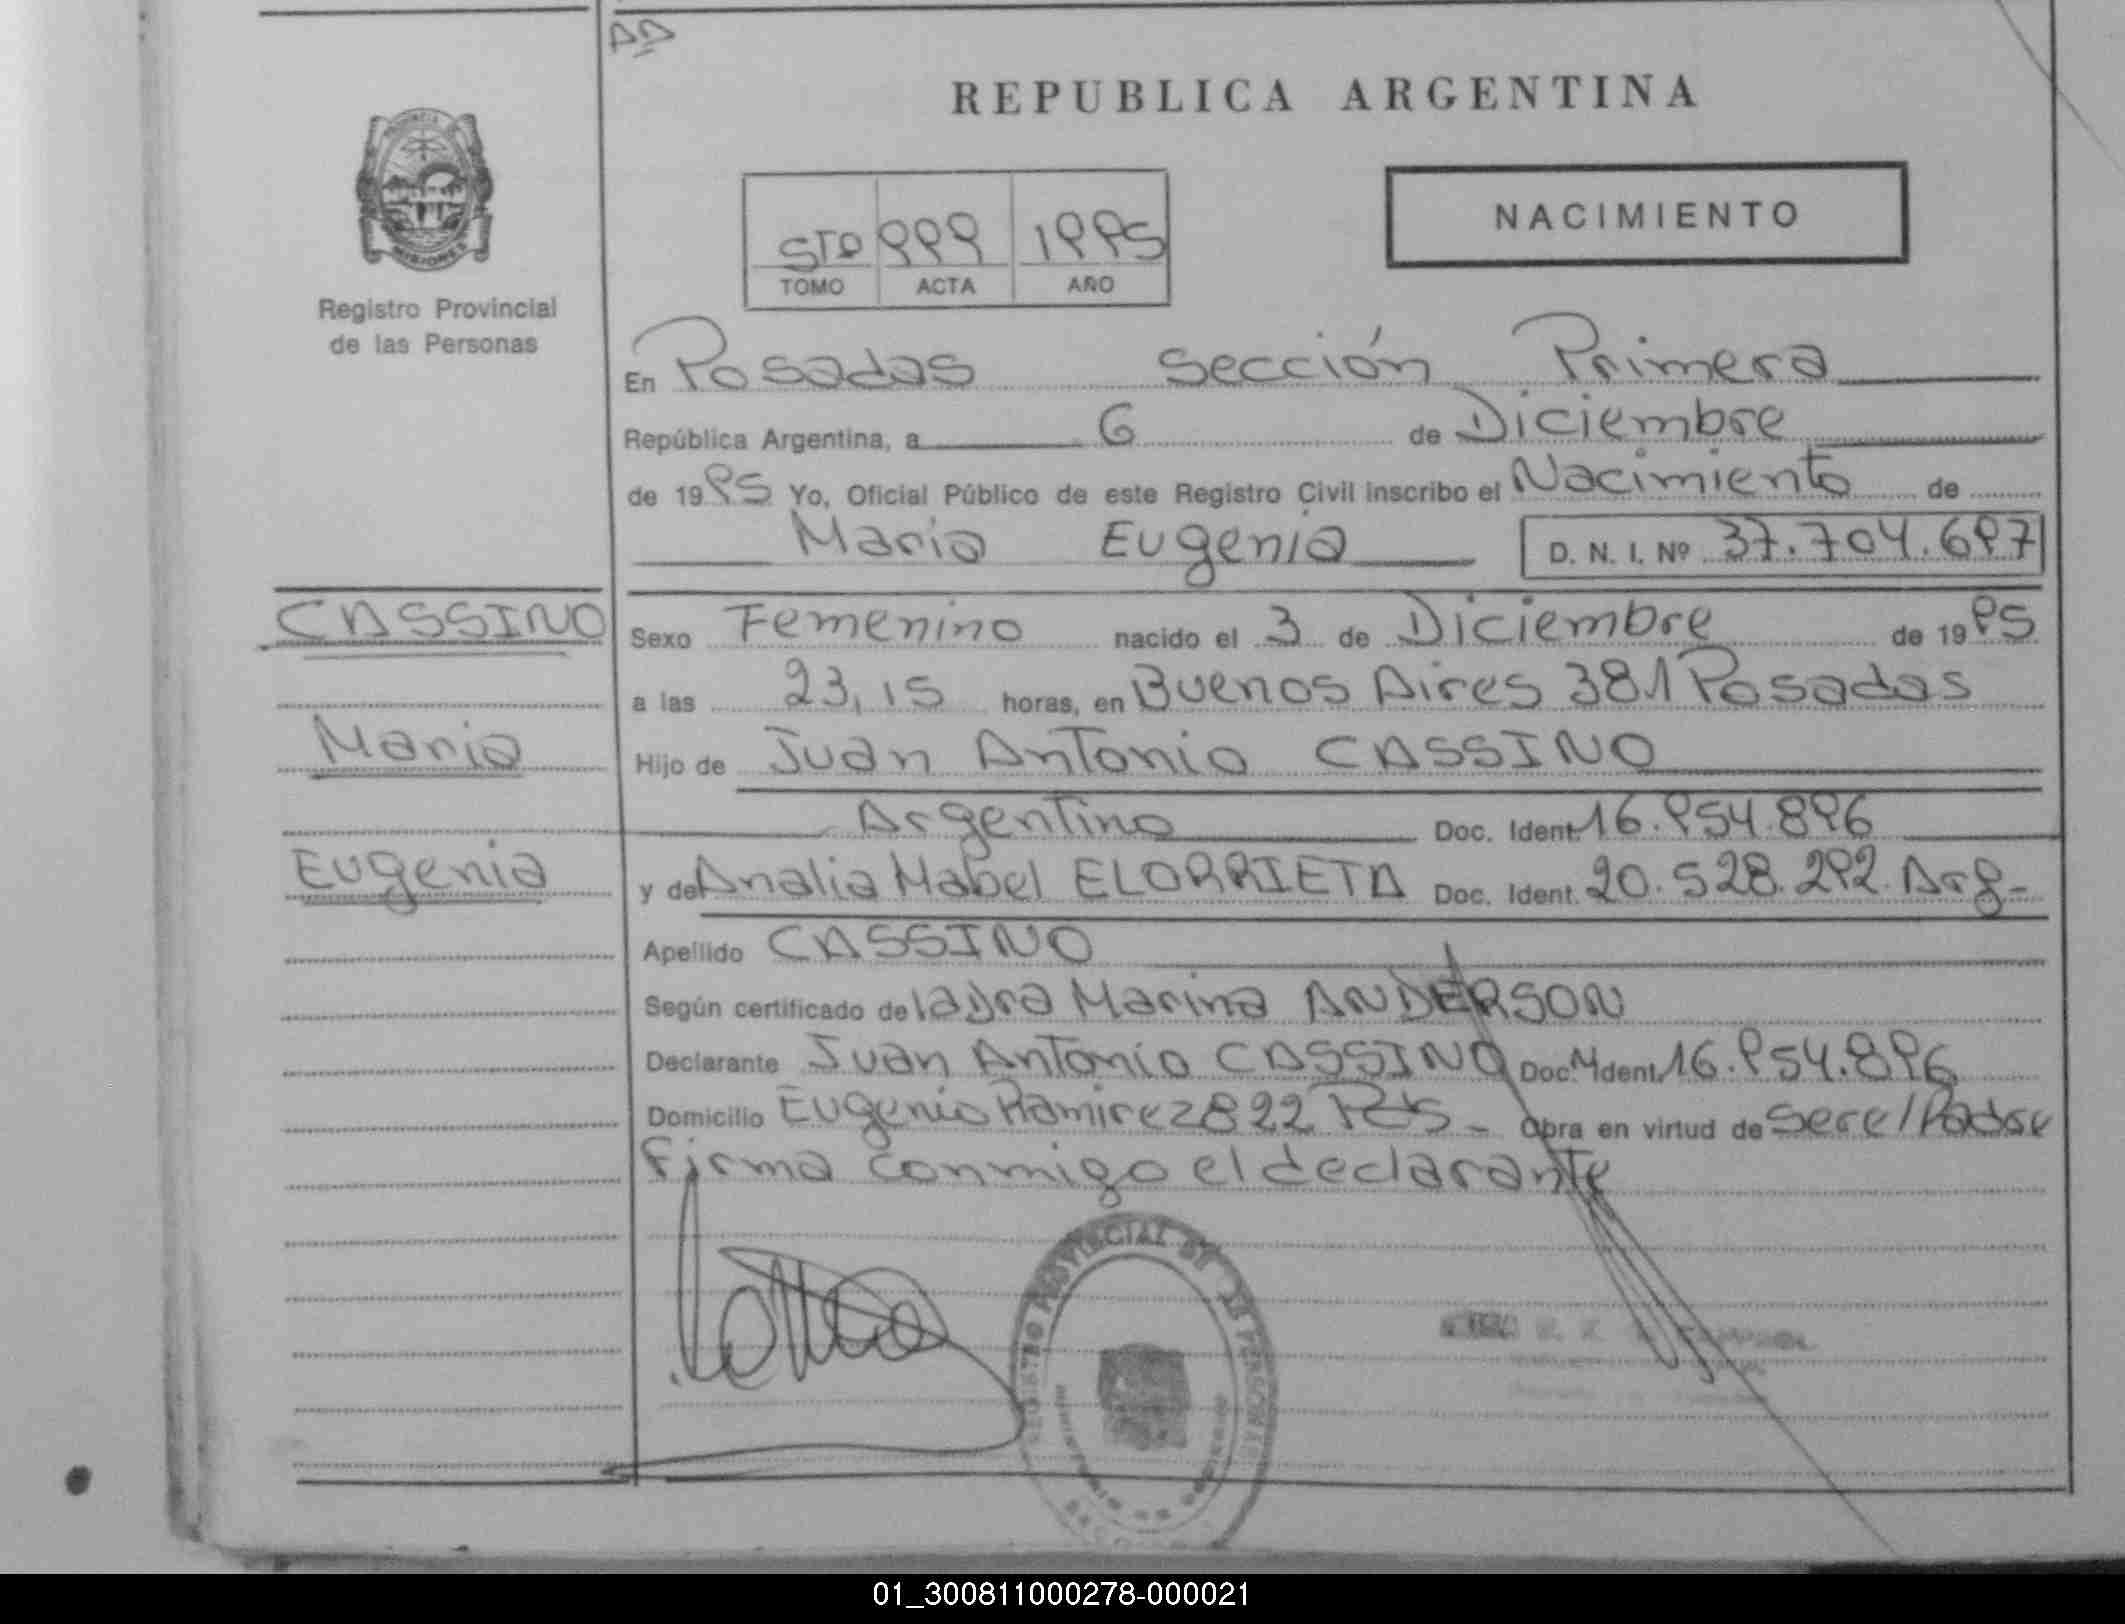 REPUBLICA ARGENTINA
PROVINCIA DE
MISIONES
Registro Provincial
de las Personas
STO 999 1995
TOMO ACTA AÑO
NACIMIENTO
En Posadas Sección Primera
República Argentina, a 6 de Diciembre
de 1995 Yo, Oficial Público de este Registro Civil inscribo el Nacimiento de
Maria Eugenia D. N. I. Nº 37.704.697
CASSINO
Sexo Femenino nacido el 3 de Diciembre de 1995
a las 23,15 horas, en Buenos Aires 381 Posadas
Maria
Hijo de Juan Antonio CASSINO
Argentino Doc. Ident. 16.954.896
Eugenia
y de Analia Mabel ELORRIETA Doc. Ident. 20.528.292. Arg-
Apellido CASSINO
Según certificado de la Dra Marina ANDERSON
Declarante Juan Antonio CASSINO Doc. Ident. 16.954.896
Domicilio Eugenio Ramirez 822 Pds - Obra en virtud de ser el Padre
Firma conmigo el declarante
REGISTRO PROVINCIAL DE LAS PERSONAS
01_300811000278-000021